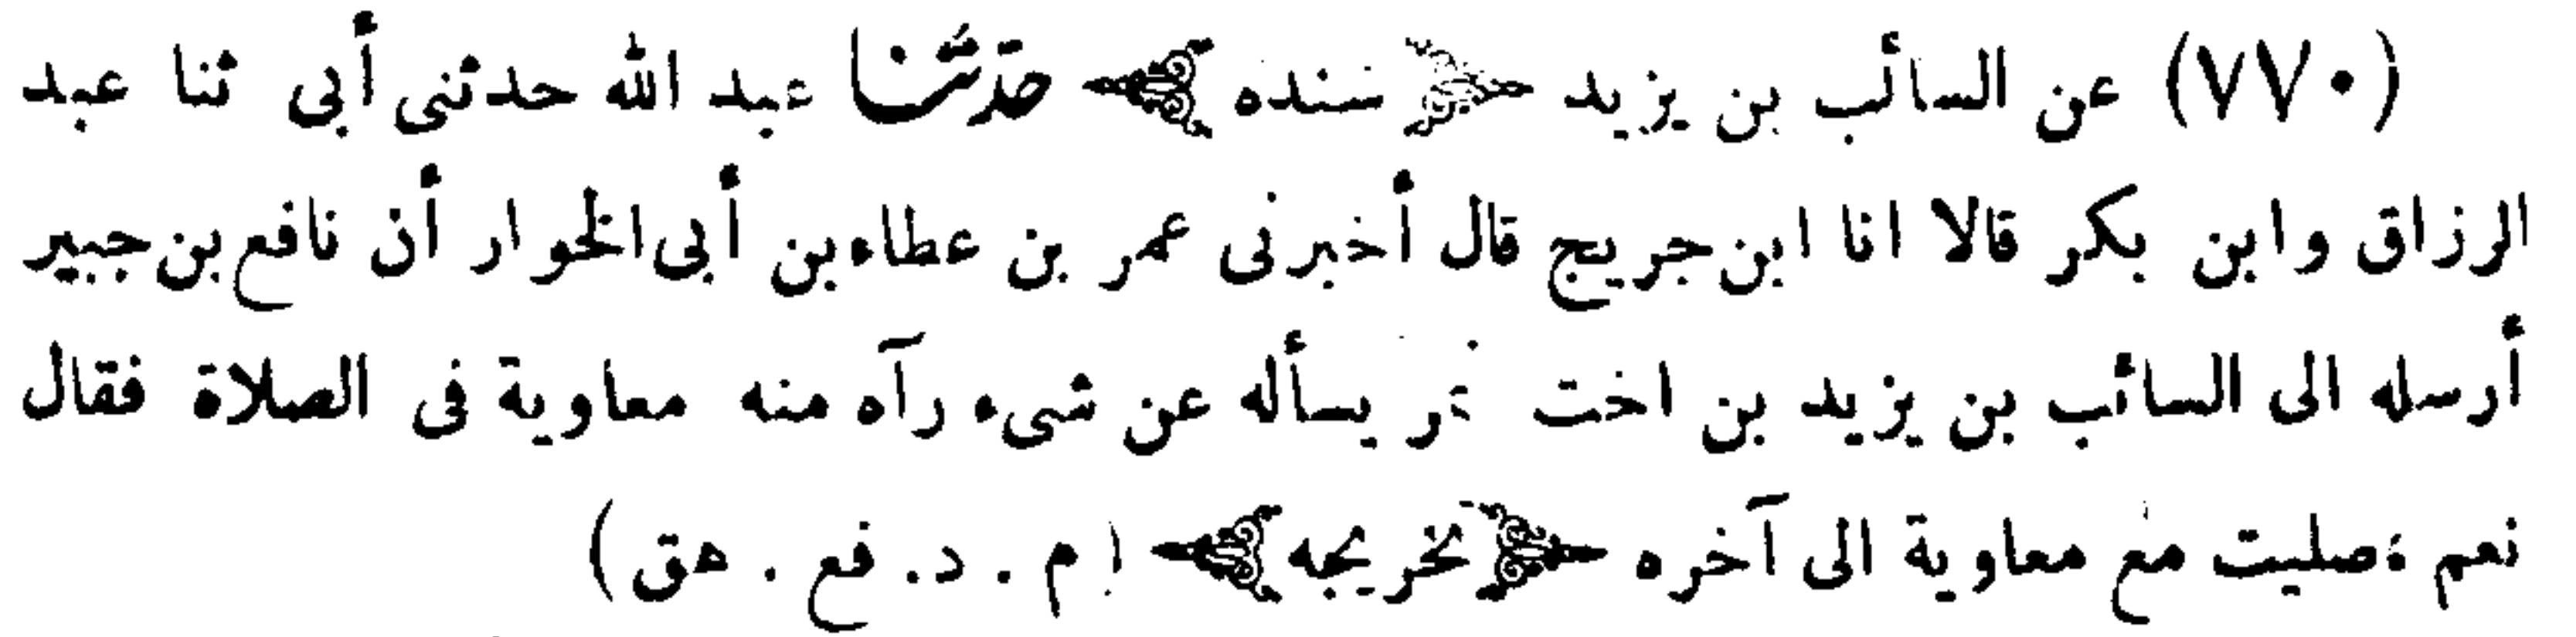 (٧٧٠) عن السائب بن يزيد ﴿ سنده ﴾ حدثنا عبد الله حدثنى أبى ثنا عبد
الرزاق وابن بكر قالا انا ابن جريج قال أخبرنى عمر بن عطاء بن أبى الخوار أن نافع بن جبير
أرسله الى السائب بن يزيد بن اخت نمر يسأله عن شىء رآه منه معاوية فى الصلاة فقال
نعم صليت مع معاوية الى آخره ﴿ تخريجه ﴾ ( م . د . فع . هق )